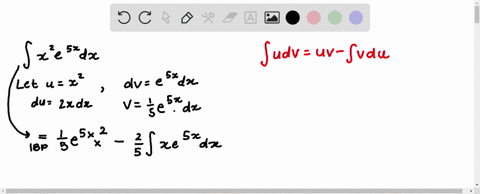 ∫x²e^{5x}dx
∫udv = uv - ∫vdu
Let u = x² , dv = e^{5x}dx
du = 2xdx V = 1/5 e^{5x}dx
= IBP 1/5 e^{5x} x² - 2/5 ∫xe^{5x}dx